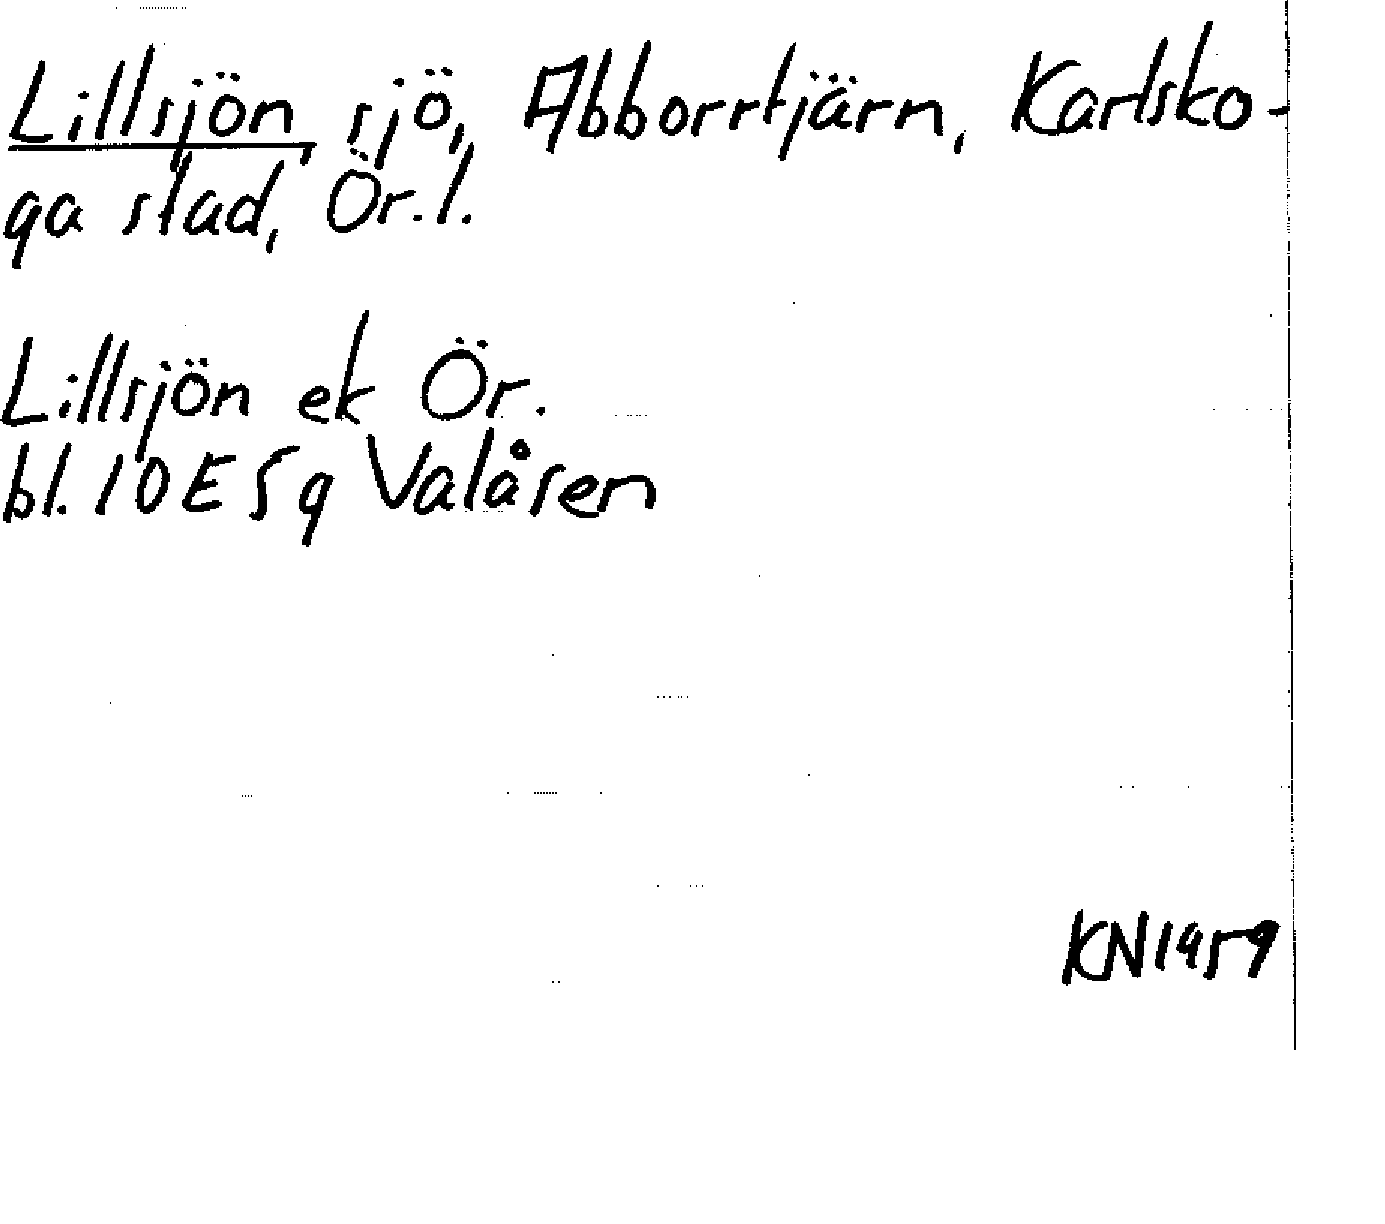 Lillsjön, sjö, Abborrtjärn, Karlsko-
ga stad, Ör.l.
Lillsjön ek Ör.
bl. 10E5g Valåsen
KN1959